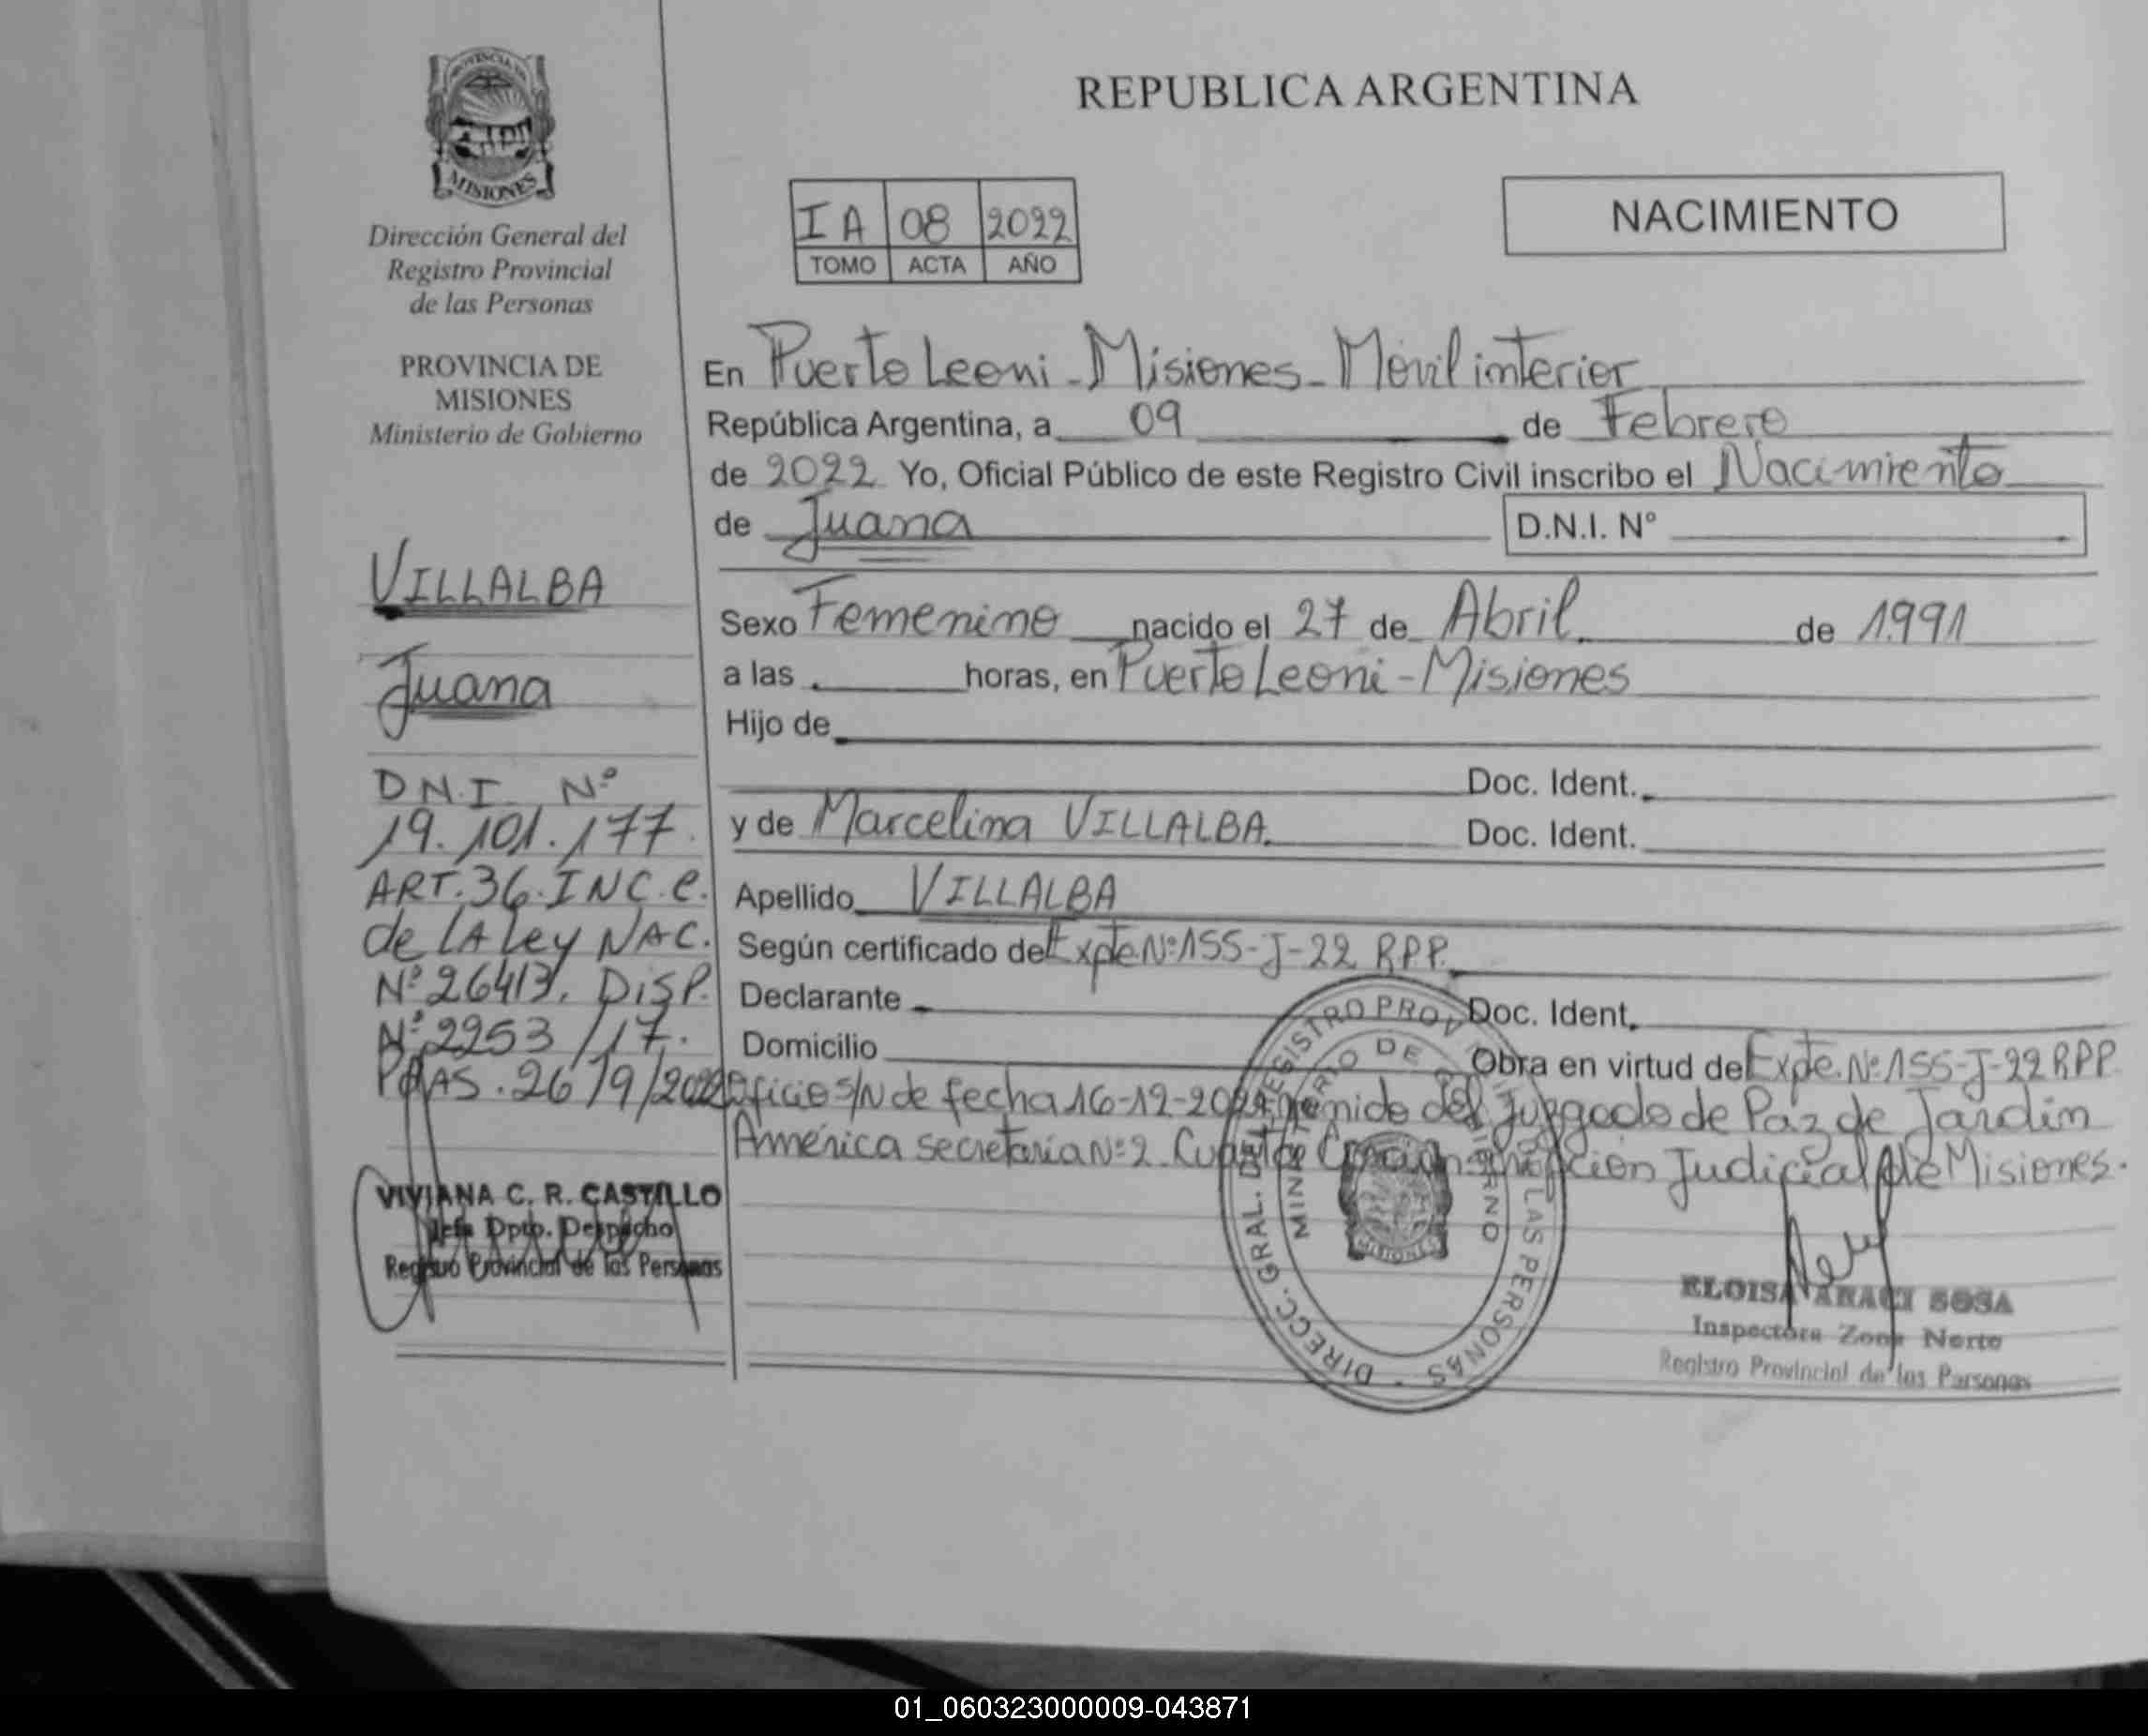 PROVINCIA DE
MISIONES
Dirección General del
Registro Provincial
de las Personas
PROVINCIA DE
MISIONES
Ministerio de Gobierno
VILLALBA
Juana
D.N.I. Nº
19.101.177.
ART.36.INC.e.
de LA Ley NAC.
Nº 26413, DISP.
Nº 2953/17.
PDAS. 26/9/2022
VIVIANA C. R. CASTILLO
Jefa Dpto. Despacho
Registro Provincial de las Personas
REPUBLICA ARGENTINA
IA 08 2022
TOMO ACTA AÑO
NACIMIENTO
En Puerto Leoni - Misiones - Móvil interior
República Argentina, a 09 de Febrero
de 2022 Yo, Oficial Público de este Registro Civil inscribo el Nacimiento
de Juana D.N.I. Nº
Sexo Femenino nacido el 27 de Abril de 1991
a las horas, en Puerto Leoni - Misiones
Hijo de
Doc. Ident.
y de Marcelina VILLALBA. Doc. Ident.
Apellido VILLALBA
Según certificado de Expte Nº 155-J-22 RPP.
Declarante Doc. Ident.
Domicilio Obra en virtud de Expte. Nº 155-J-22 RPP.
Oficio S/N de fecha 16-12-2021 del Juzgado de Paz de Jardín
América secretaria Nº 2 Judicial de Misiones.
DIRECC. GRAL. DEL REGISTRO PROV. DE LAS PERSONAS
MINISTERIO DE GOBIERNO
MISIONES
ELOISA ARACI SOSA
Inspectora Zona Norte
Registro Provincial de las Personas
01_060323000009-043871